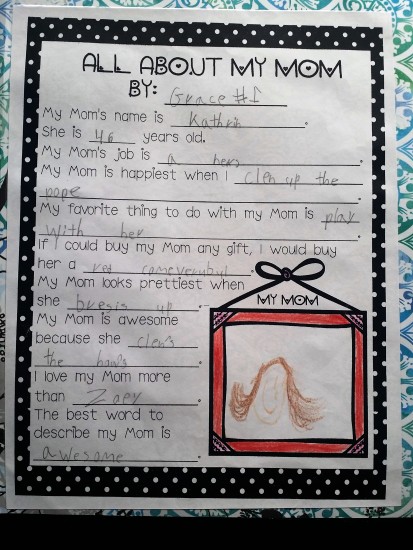 ALL ABOUT MY MOM
BY: Grace #1
My Mom's name is Kathrin.
She is 46 years old.
My Mom's job is a ners.
My Mom is happiest when I clen up the
pope.
My favorite thing to do with my Mom is play
with her.
If I could buy my Mom any gift, I would buy
her a red
My Mom looks prettiest when
she bresis up.
MY MOM
My Mom is awesome
because she clens
the haws.
I love my Mom more
than Zoey.
The best word to
describe my Mom is
awesome.